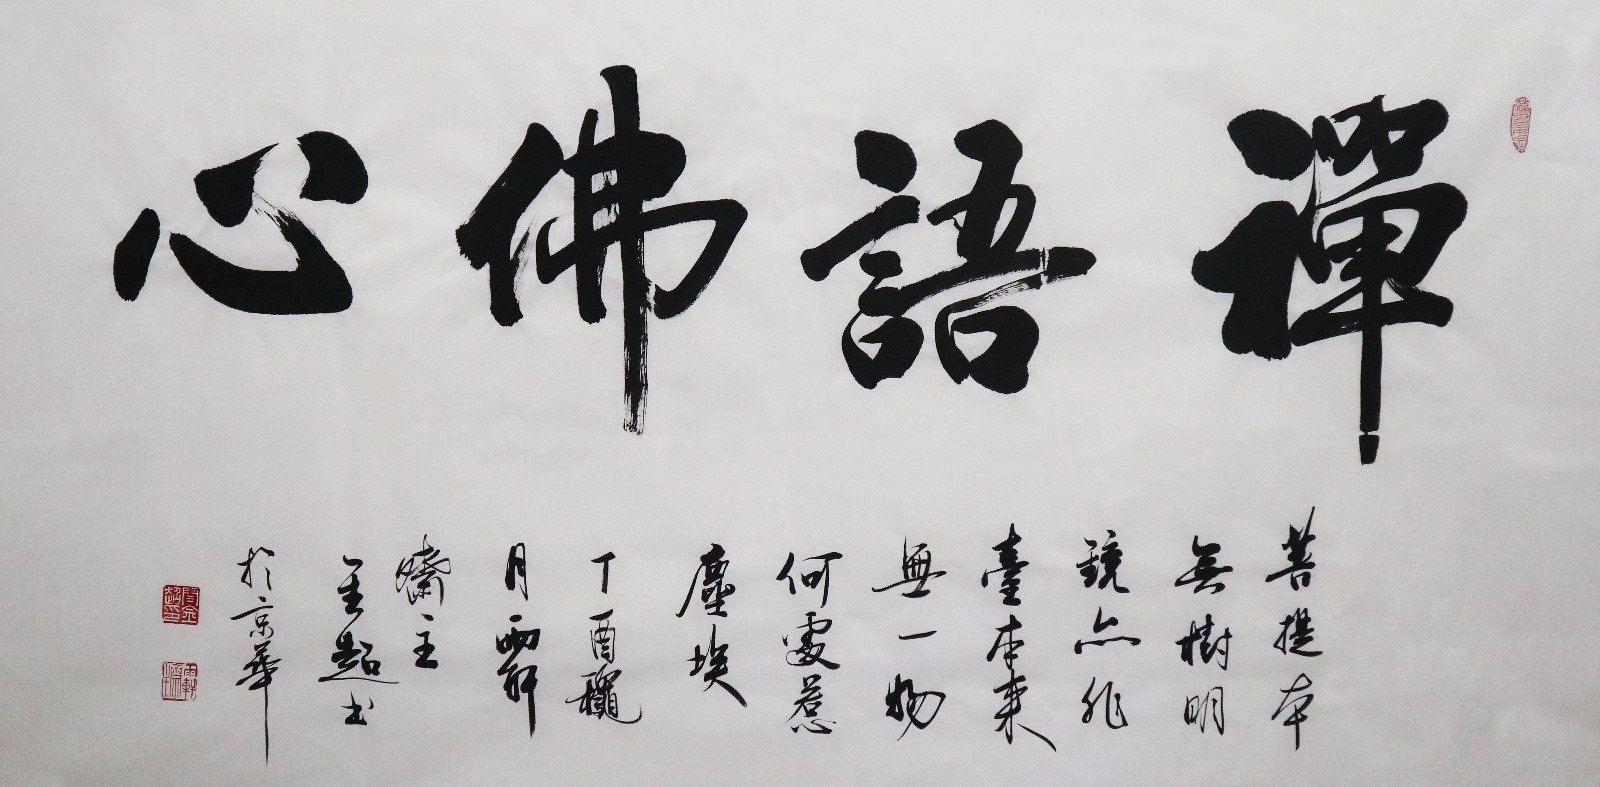 禪語佛心
菩提本
無樹明
鏡亦非
臺本來
無一物
何處惹
塵埃
丁酉龝
月雨軒
齋主
金超书
於京華